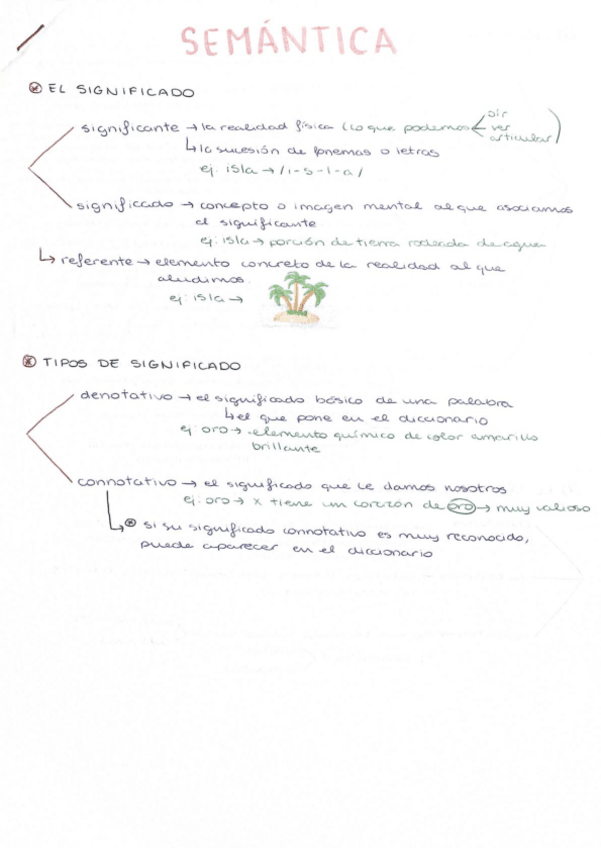 SEMÁNTICA
EL SIGNIFICADO
significante → la realidad física (lo que podemos oir
ver
articular)
↳ la sucesión de fonemas o letras
ej: isla → /i-s-l-a/
significado → concepto o imagen mental al que asociamos
el significante
ej: isla → porción de tierra rodeada de agua
↳ referente → elemento concreto de la realidad al que
aludimos.
ej: isla →
TIPOS DE SIGNIFICADO
denotativo → el significado básico de una palabra
↳ el que pone en el diccionario
ej: oro → elemento químico de color amarillo
brillante
connotativo → el significado que le damos nosotros
ej: oro → x tiene un corazón de oro → muy valioso
↳ si su significado connotativo es muy reconocido,
puede aparecer en el diccionario